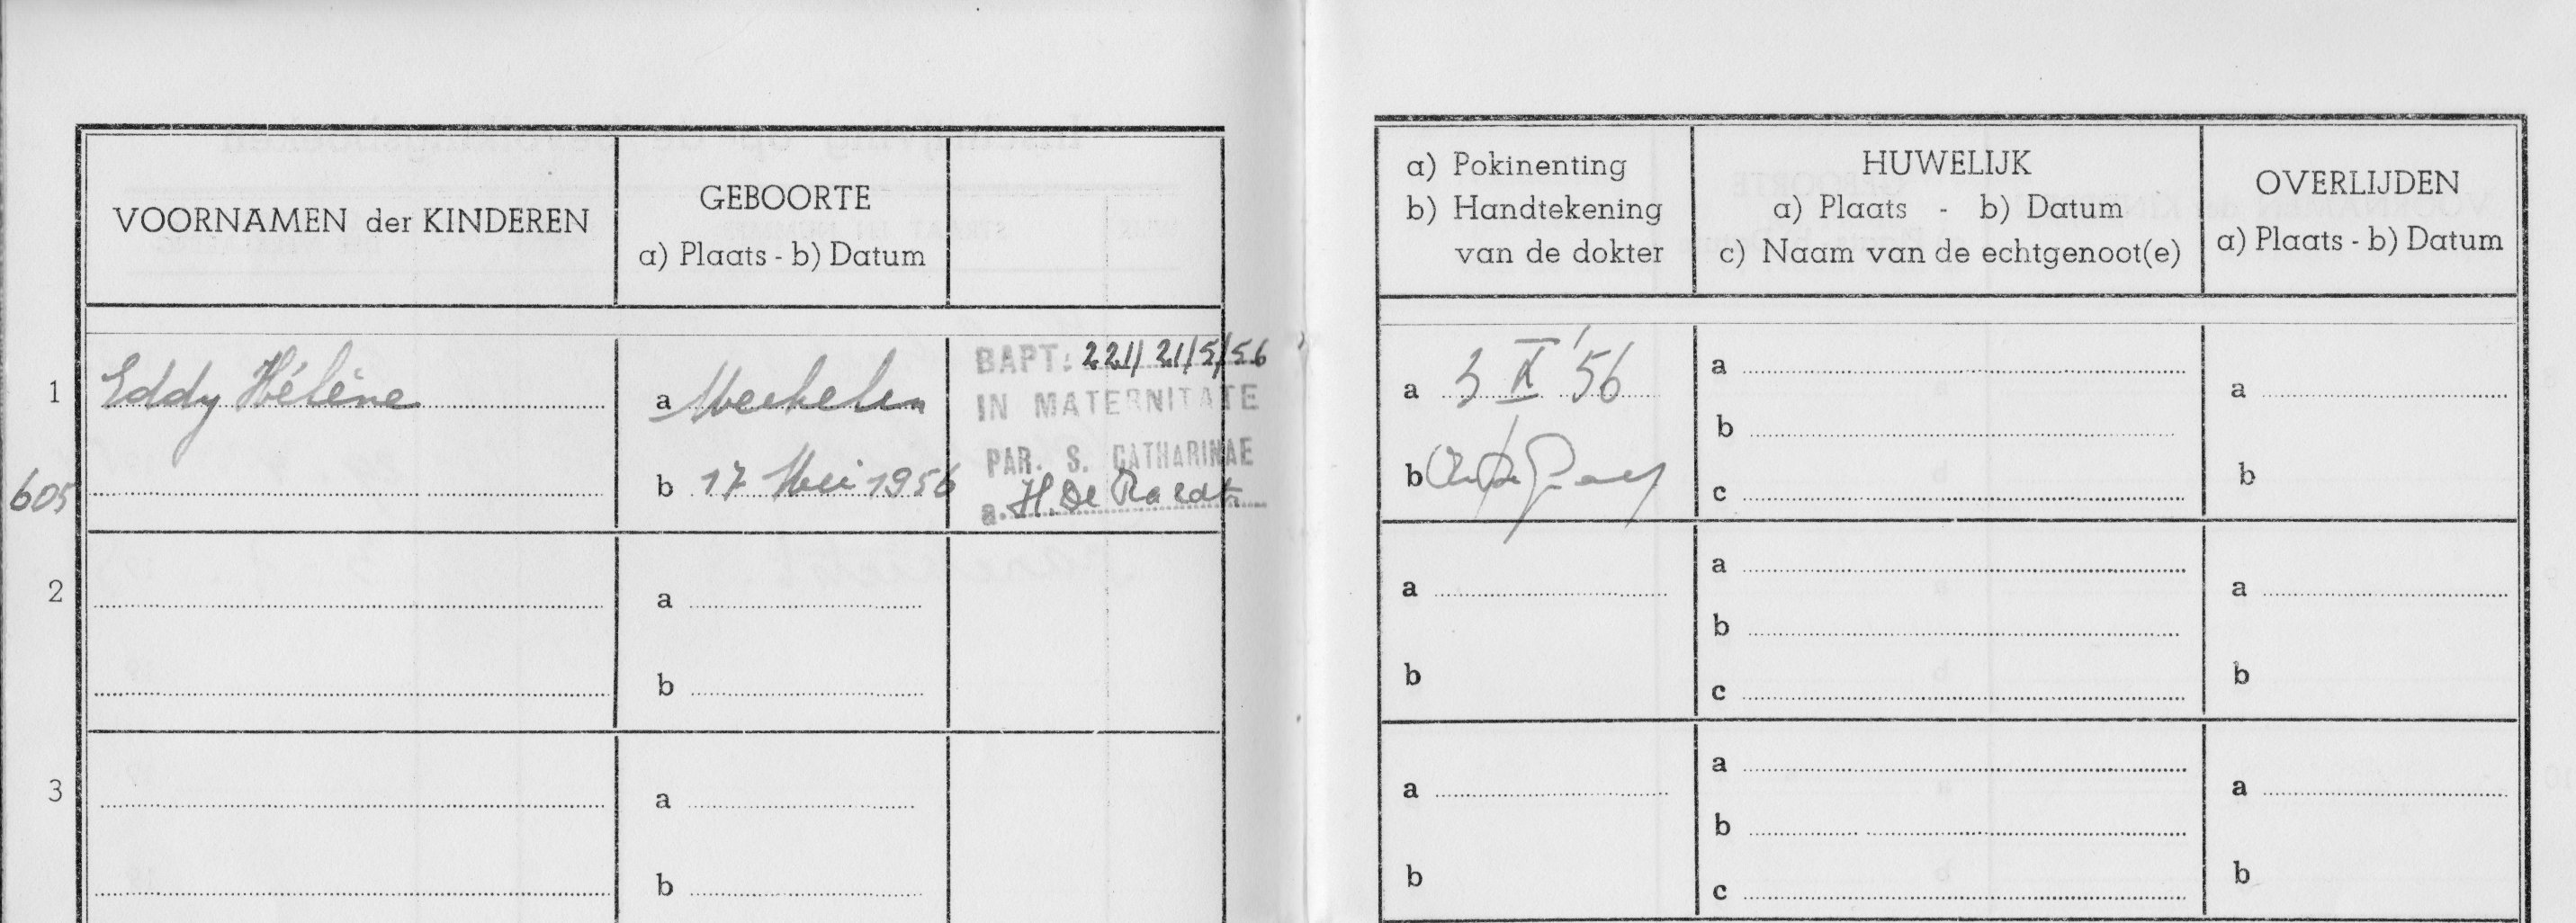 VOORNAMEN der KINDEREN
GEBOORTE
a) Plaats - b) Datum
1
Eddy Hélène
a Mechelen
b 17 Mei 1956
605
BAPT: 221/ 21/5/56
IN MATERNITATE
PAR. S. CATHARINAE
a. H. De
2
a
b
3
a
b
a) Pokinenting
b) Handtekening
van de dokter
HUWELIJK
a) Plaats - b) Datum
c) Naam van de echtgenoot(e)
OVERLIJDEN
a) Plaats - b) Datum
a '56
b
a
b
c
a
b
a
b
a
b
c
a
b
a
b
a
b
c
a
b